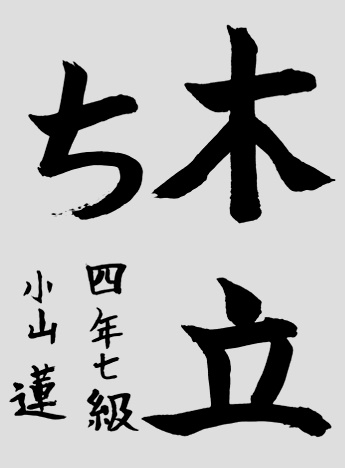 木立
ち
四年七級
小山蓮